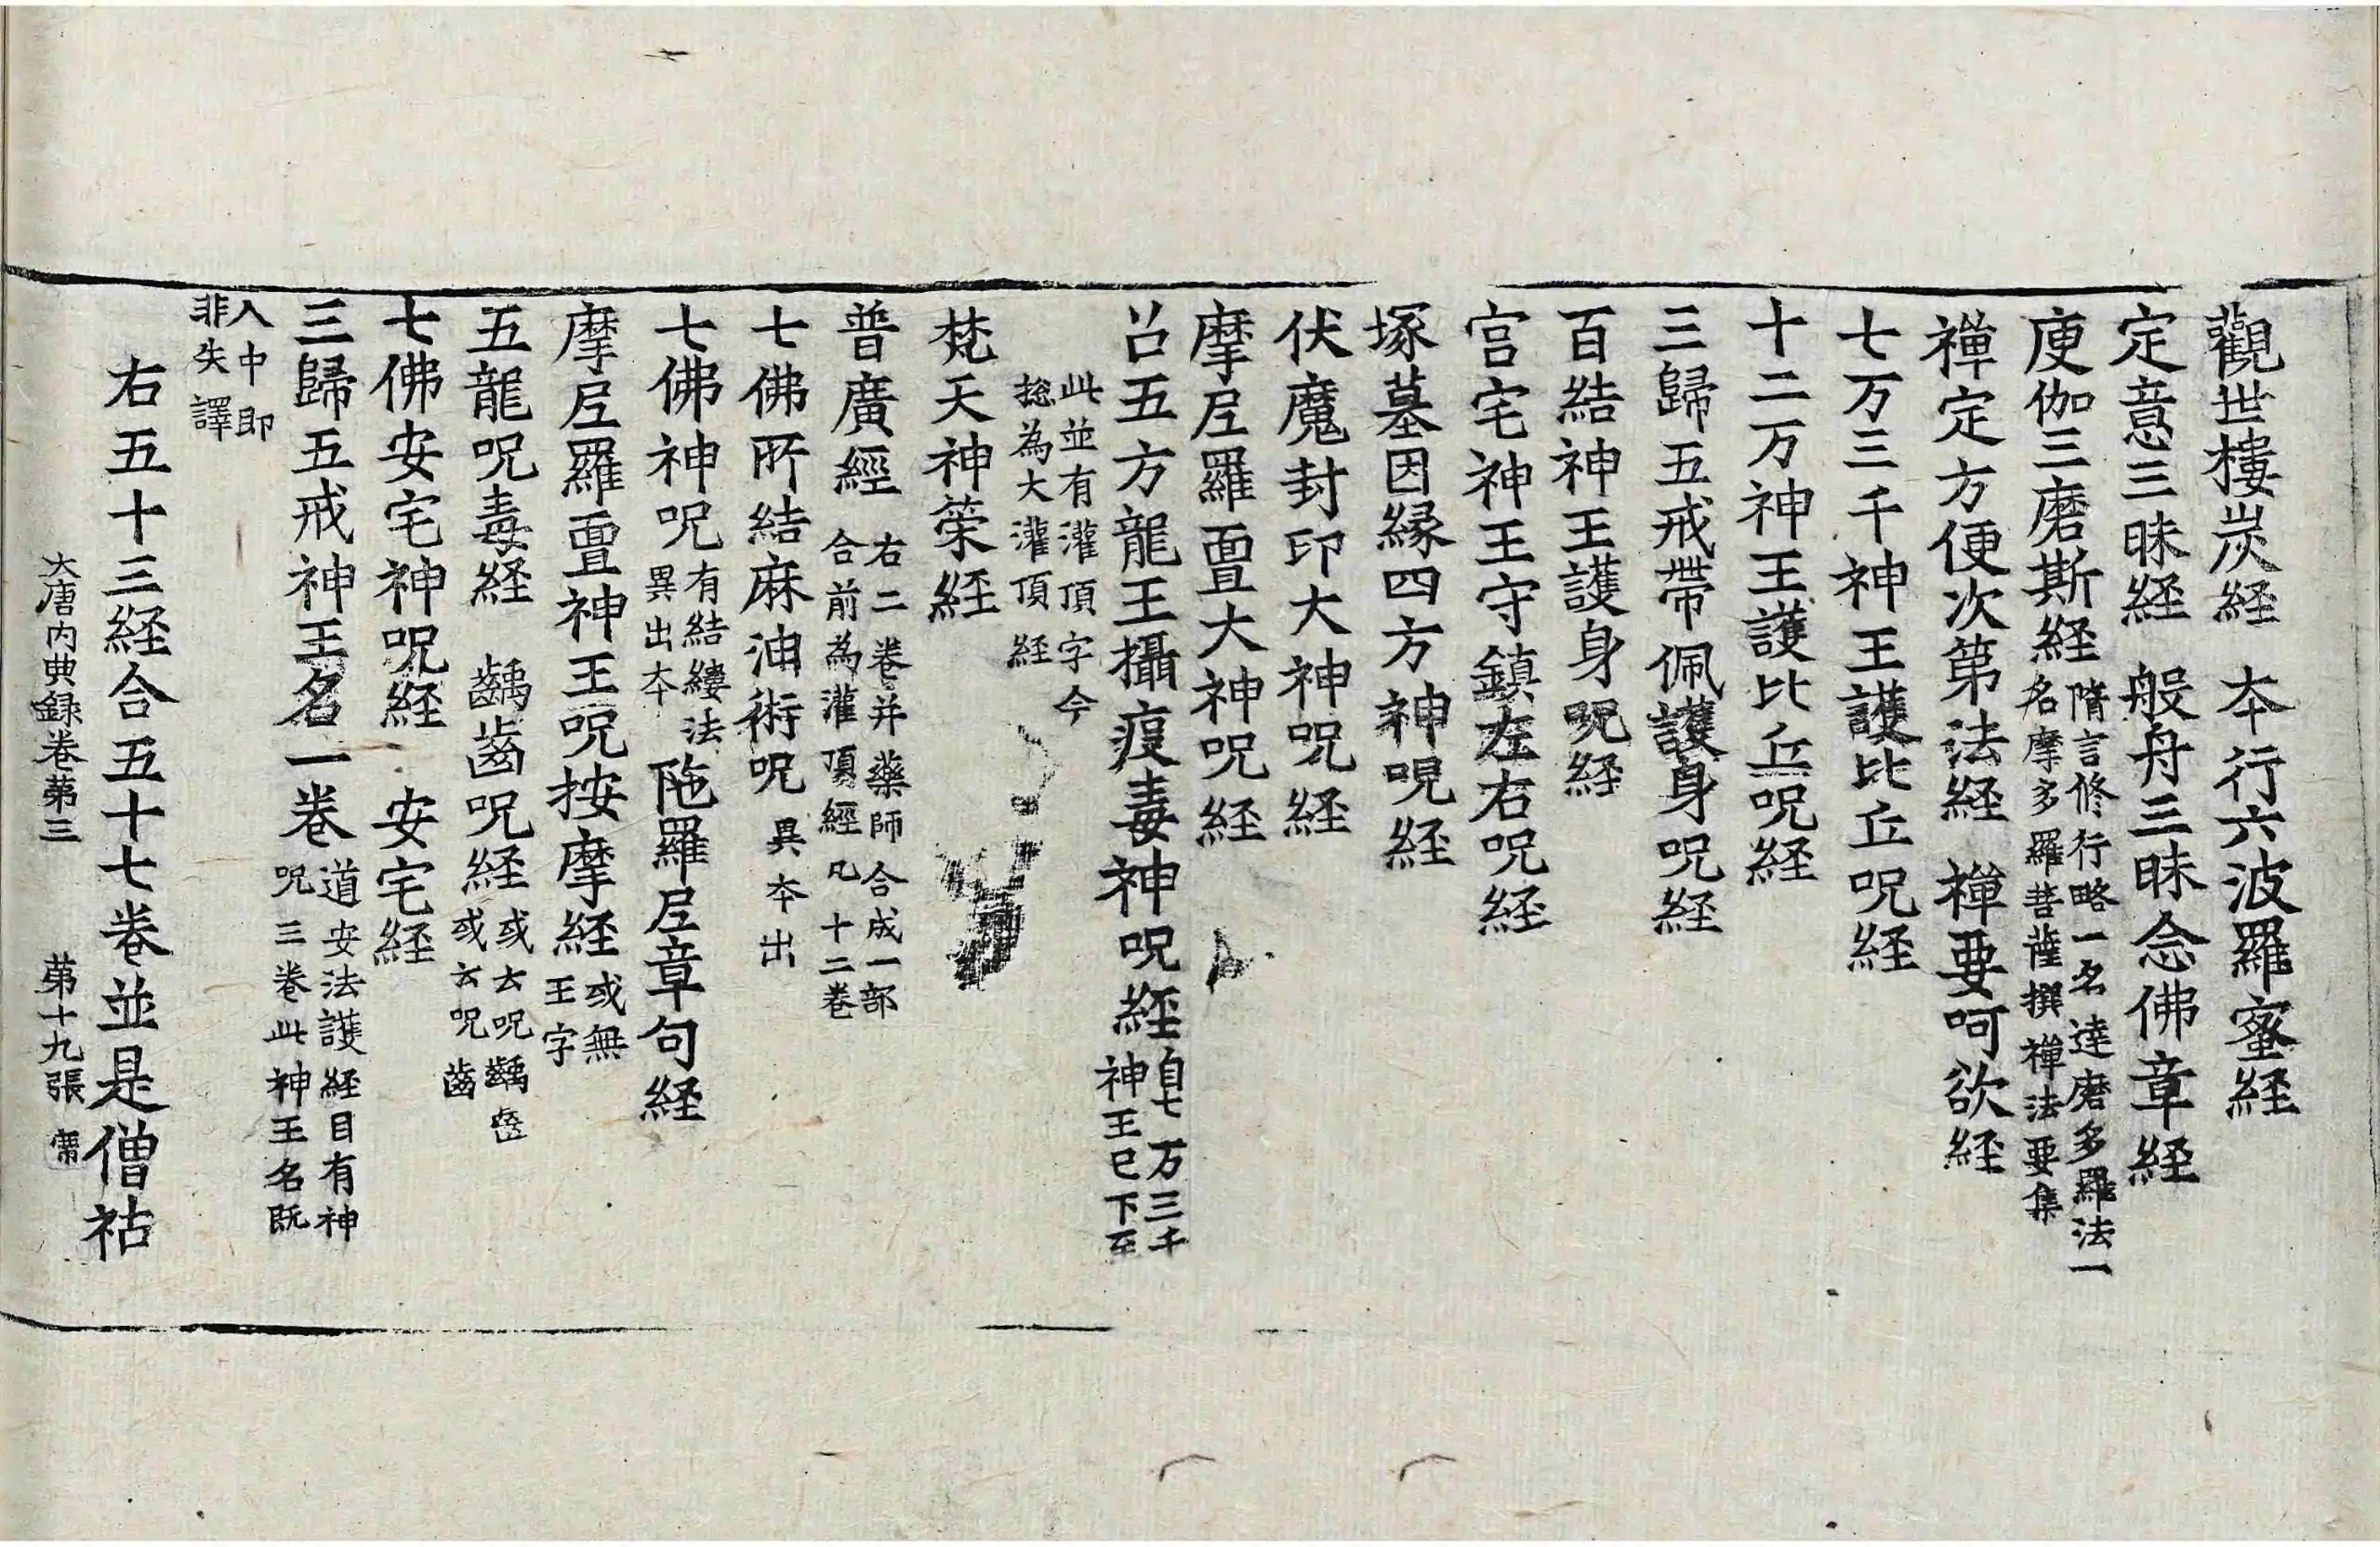 觀世樓炭経　夲行六波羅蜜経
定意三昧経　般舟三昧念佛章経
庾伽三磨斯経隋言修行略一名達磨多羅法一
名摩多羅菩薩撰禅法要集
禅定方便次第法経　禅要呵欲経
七万三千神王護比丘呪経
十二万神王護比丘呪経
三歸五戒帶佩護身呪経
百結神王護身呪経
宫宅神王守鎮左右呪経
塚墓因緣四方神呪経
伏魔封印大神呪経
摩𡰱羅亶大神呪経
召五方龍王攝疫毒神呪経自七万三千
神王已下至
此並有灌頂字今
揔為大灌頂経
梵天神策経
普廣經右二卷并藥師合成一部
合前為灌頂經凡十二卷
七佛所結麻油術呪　異夲出
七佛神呪有結縷法
異出夲　陁羅𡰱章句経
摩𡰱羅亶神王呪按摩経或無
王字
五龍呪毒経　齲齒呪経或云呪齲齒
或云呪齒
七佛安宅神呪経　安宅経
三歸五戒神王名一卷道安法護経目有神
呪三卷此神王名既
入中即
非失譯
右五十三経合五十七卷並是僧祐
大唐内典録卷第三　第十九張